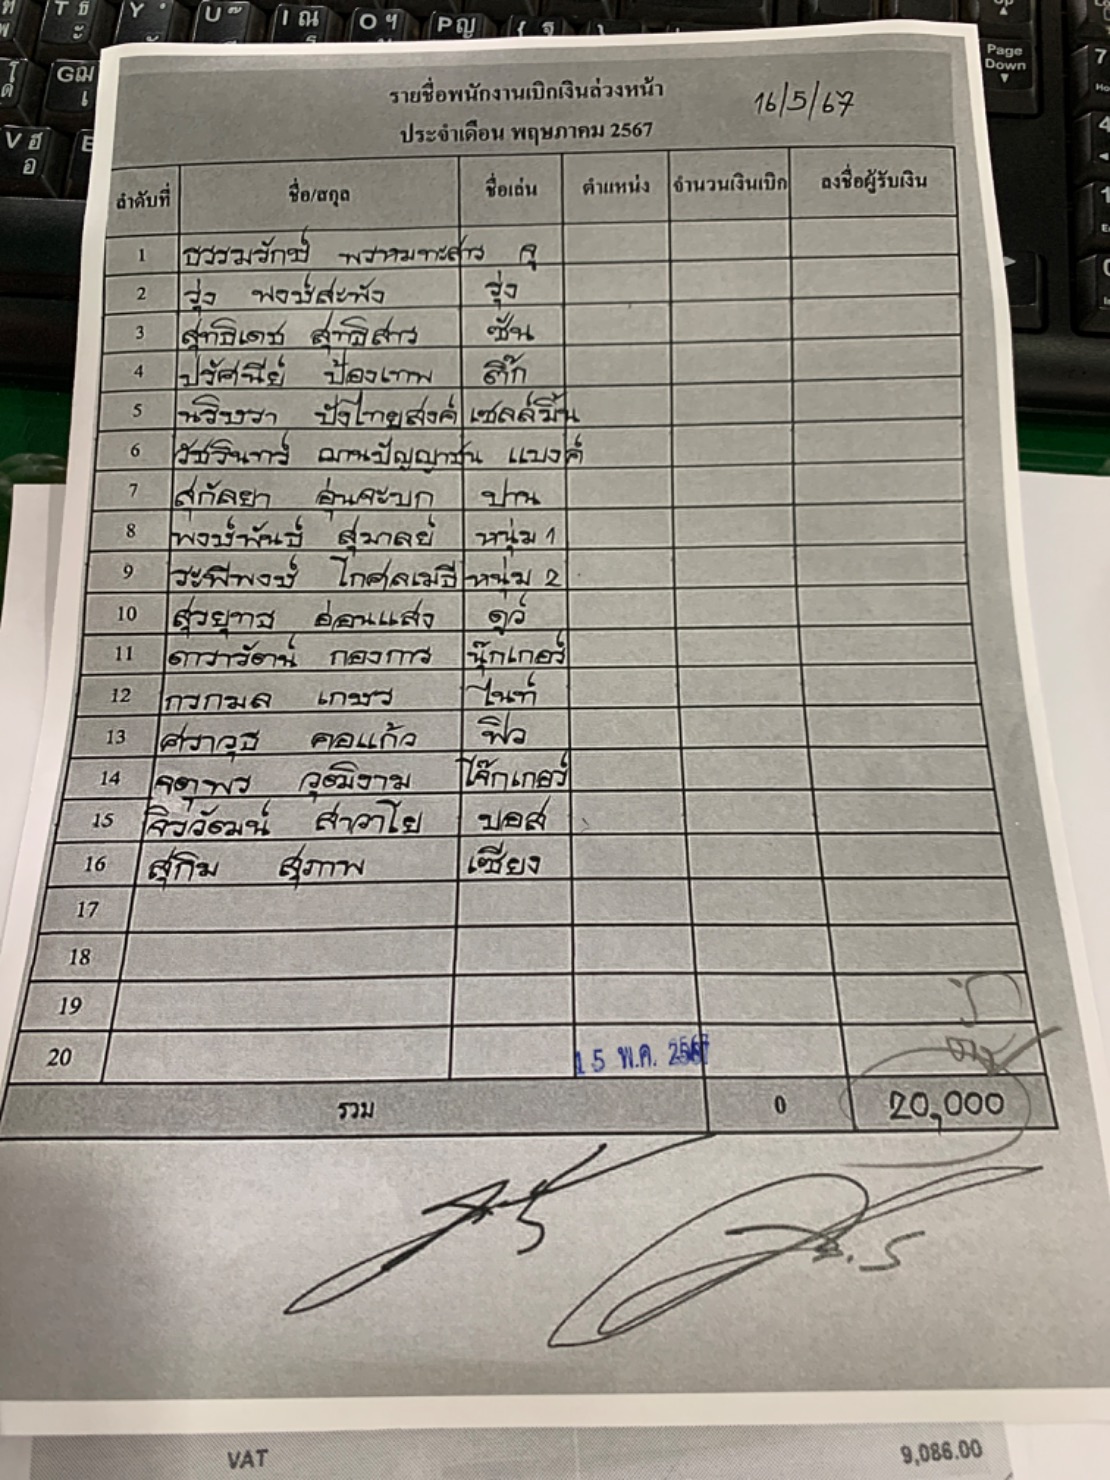 รายชื่อพนักงานเบิกเงินล่วงหน้า
16/5/67
ประจำเดือน พฤษภาคม 2567
ลำดับที่ ชื่อ/สกุล ชื่อเล่น ตำแหน่ง จำนวนเงินเบิก ลงชื่อผู้รับเงิน
1 ธรรมรักษ์ พราหมทะสาร ดุ
2 รุ่ง พงษ์สะพัง รุ่ง
3 สุทธิเดช สุทธิสาร ซัน
4 ปรัศนีย์ ป้องเทพ ติ๊ก
5 นริษรา ปังไทยสงค์ เซลล์มิ้น
6 วัชรินทร์ ฌานปัญญาชน แบงค์
7 สุกัลยา อุ่นจะบก ปาน
8 พงษ์พันธ์ สุมาลย์ หนุ่ม 1
9 ระพีพงษ์ ไกศลเมธี หนุ่ม 2
10 สุรยุทธ อ่อนแสง ดูร์
11 ดารารัตน์ กองการ นุ๊กเกอร์
12 กรกมล เกษร ไนท์
13 ศราวุธ คอแก้ว ฟิว
14 จตุพร วุฒิงาม โจ๊กเกอร์
15 จิรวัฒน์ สาวาโย บอส
16 สุกิม สุภาพ เซียง
17
18
19
20 15 พ.ค. 2567
รวม 0 20,000
VAT 9,086.00
T ธ ะ
Y
U
I ณ ร
O ฯ
P ญ
G ฌ เ
V ฮ อ
Page Down
7
4